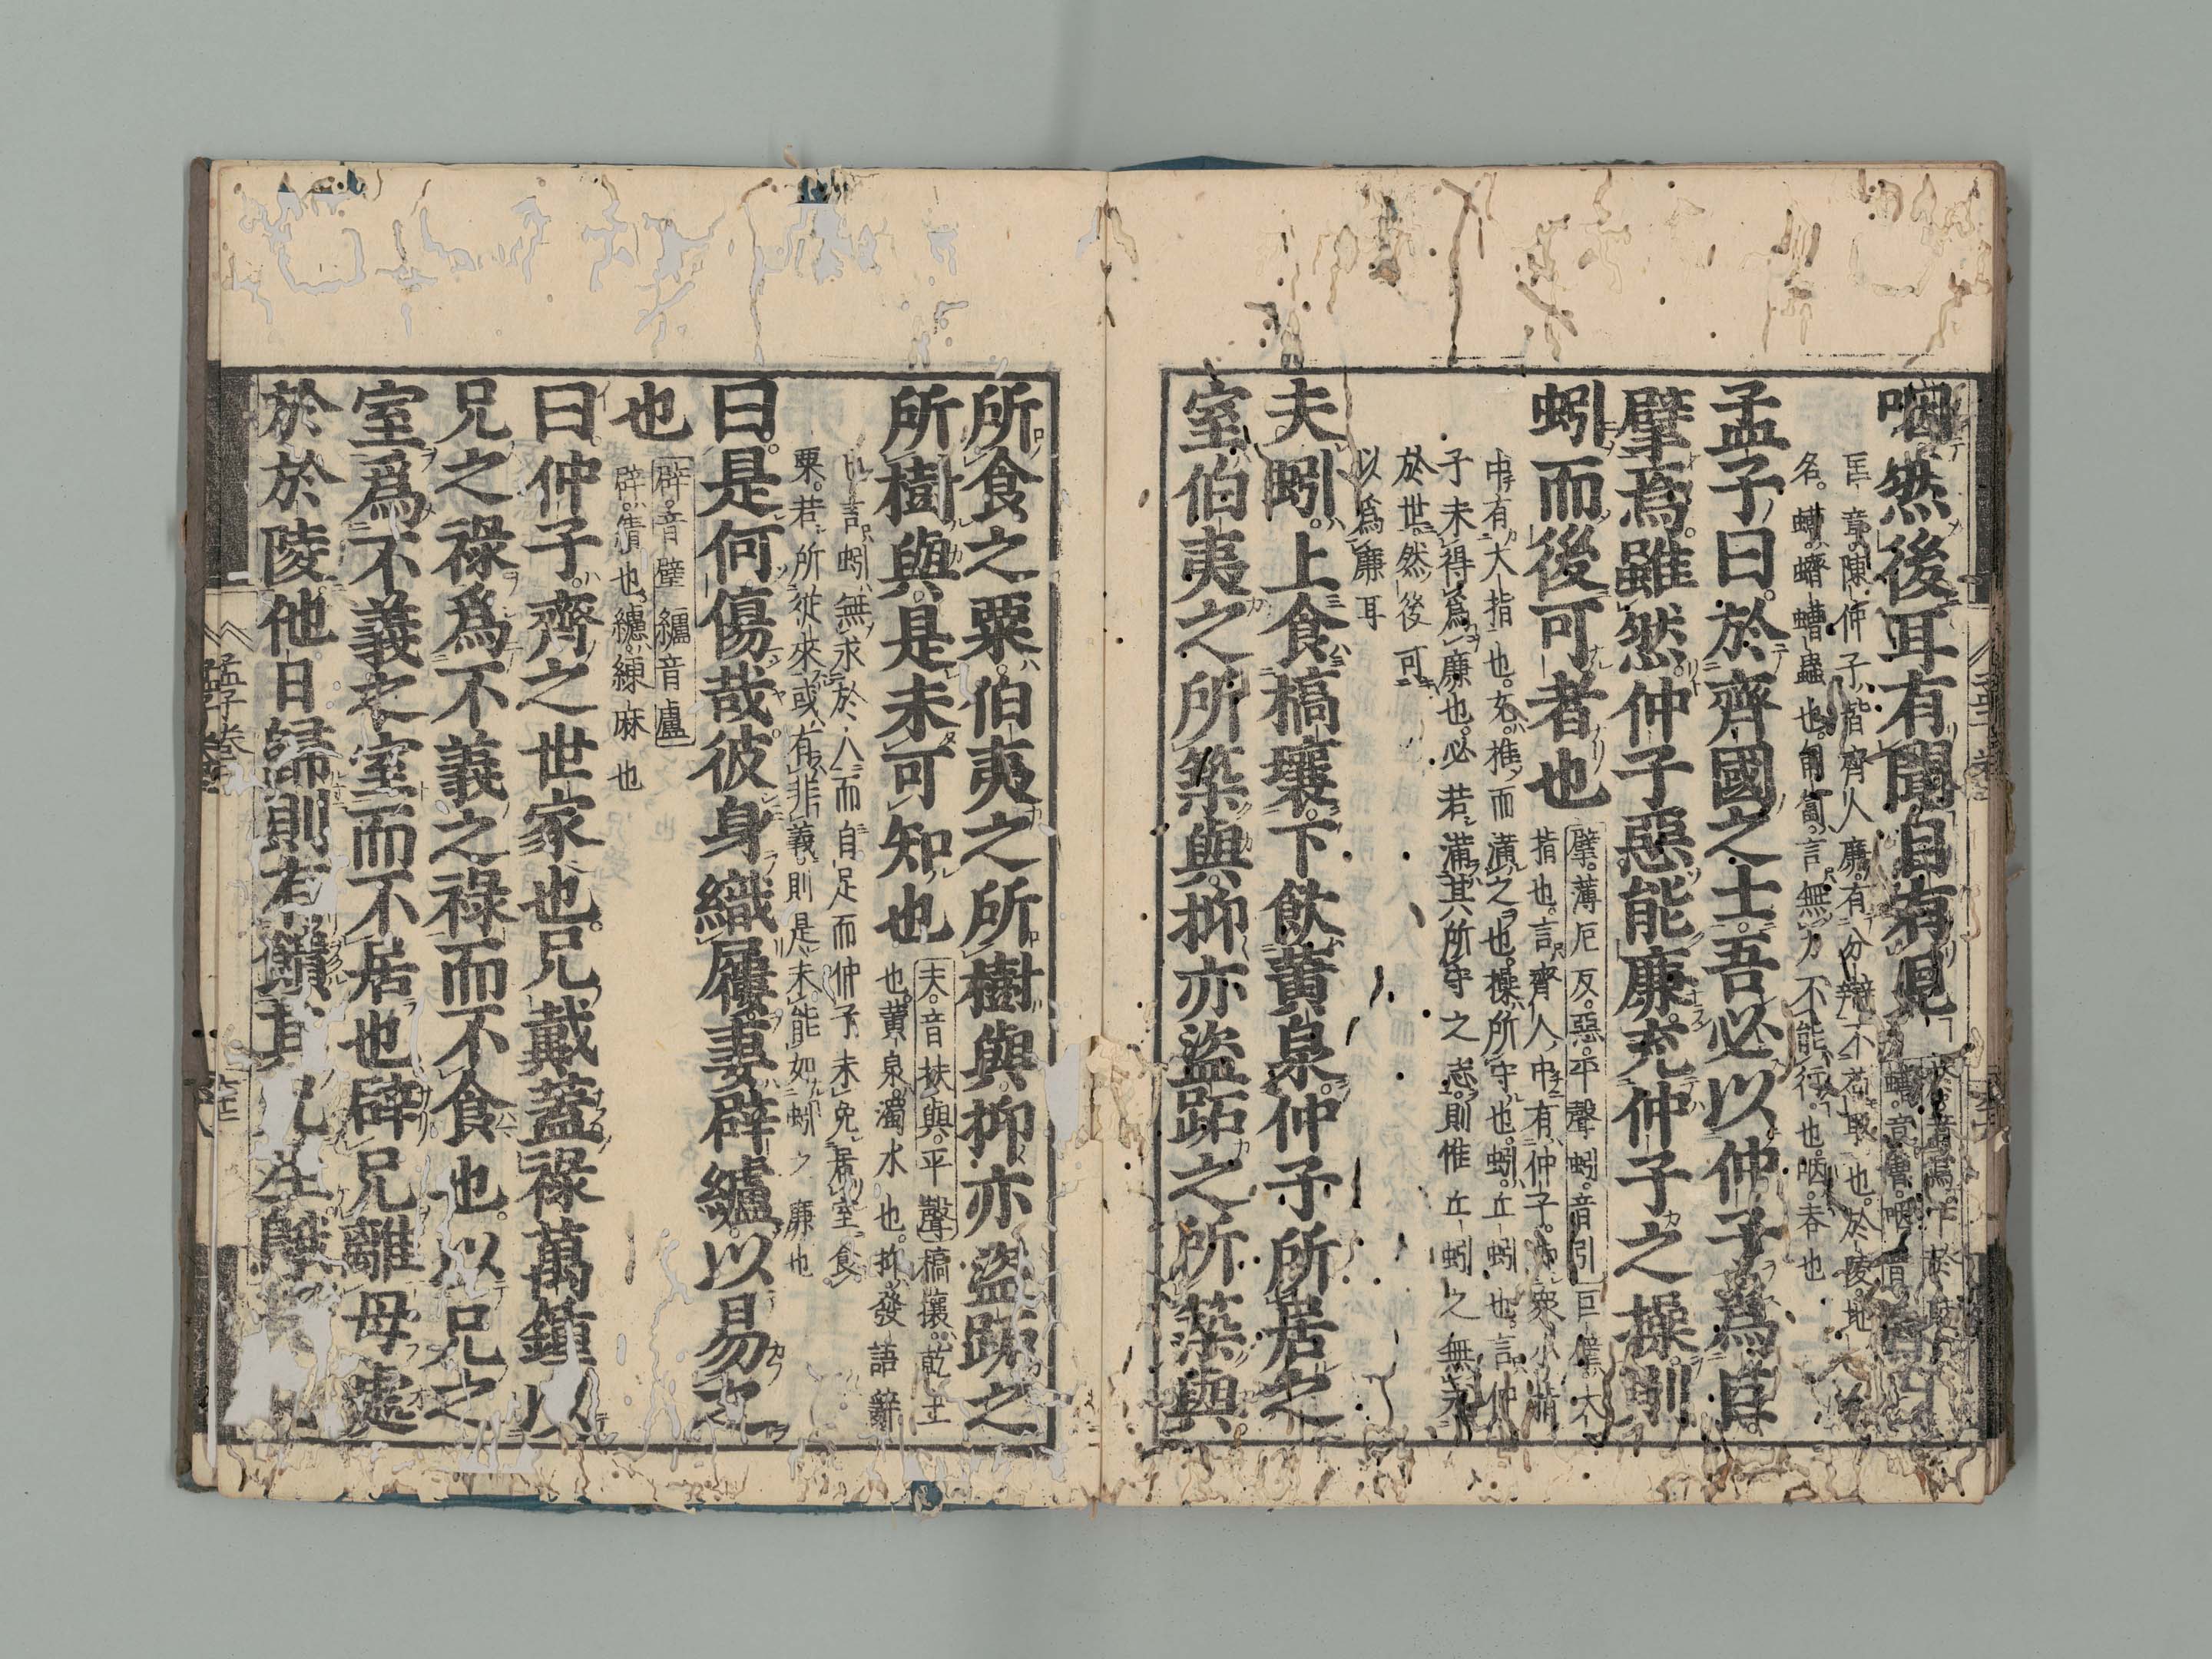 咽然後耳有聞目有見
匡章陳仲子皆齊人廉有分辯不苟取也於陵地
名螬蠐螬蟲也匍匐言無力不能行也咽吞也
孟子曰於齊國之士吾必以仲子爲巨
擘焉雖然仲子惡能廉充仲子之操則
蚓而後可者也
擘薄厄反惡平聲蚓音引巨擘大
指也言齊人中有仲子如衆小指
中有大指也充推而滿之也操所守也蚓丘蚓也言仲
子未得爲廉也必若滿其所守之志則惟丘蚓之無求
於世然後可
以爲廉耳
夫蚓上食槁壤下飲黃泉仲子所居之
室伯夷之所築與抑亦盜跖之所築與
所食之粟伯夷之所樹與抑亦盜跖之
所樹與是未可知也
夫音扶與平聲槁壤乾土
也黃泉濁水也抑發語辭
也言蚓無求於人而自足而仲子未免居室食
粟若所從來或有非義則是未能如蚓之廉也
曰是何傷哉彼身織屨妻辟纑以易之
也
辟音壁纑音盧
辟績也纑練麻也
曰仲子齊之世家也兄戴蓋祿萬鍾以
兄之祿爲不義之祿而不食也以兄之
室爲不義之室而不居也辟兄離母處
於於陵他日歸則有饋其兄生鵝
孟子卷